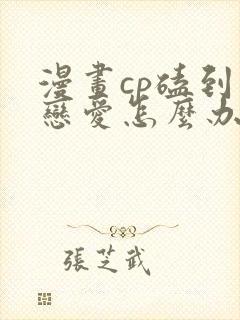 漫畫cp磕到
戀愛怎麼办
張芝武